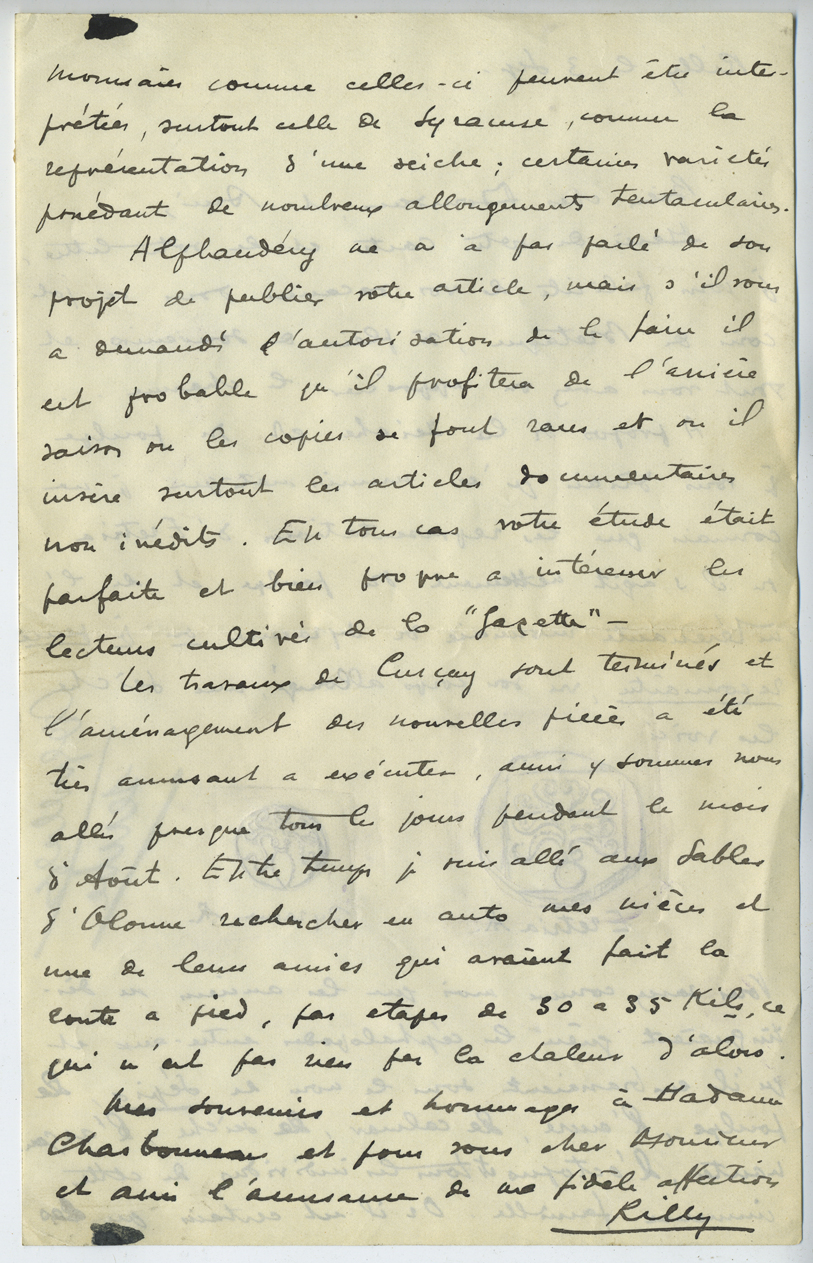 monnaies comme celles-ci peuvent être inter-
prétées, surtout celle de Syracuse, comme la
représentation d'une seiche ; certaines variétés
possédant de nombreux allongements tentaculaires.
Alphandéry ne m'a pas parlé de son
projet de publier votre article, mais s'il vous
a demandé l'autorisation de le faire il
est probable qu'il profitera de l'arrière
saison ou les copies se font rares et ou il
insère surtout les articles documentaires
non inédits. En tous cas votre étude était
parfaite et bien propre a intéresser les
lecteurs cultivés de la "Gazette" –
Les travaux de Curçay sont terminés et
l'aménagement des nouvelles pièces a été
très amusant a exécuter, aussi y sommes nous
allés presque tous les jours pendant le mois
d'Août. Entre temps je suis allé aux Sables
d'Olonne rechercher en auto mes nièces et
une de leurs amies qui avaient fait la
route a pied, par etapes de 30 a 35 Kils, ce
qui n'est pas rien par la chaleur d'alors.
Mes souvenirs et hommages à Madame
Charbonneau et pour vous cher Monsieur
et ami l'assurance de ma fidèle affection
Rilly